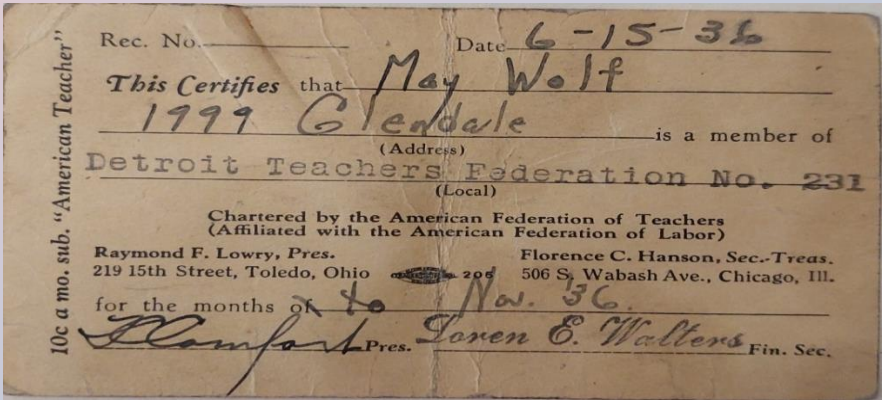 10c a mo. sub. "American Teacher"
Rec. No. Date 6-15-36
This Certifies that May Wolf
1999 Glendale is a member of
(Address)
Detroit Teachers Federation No. 231
(Local)
Chartered by the American Federation of Teachers
(Affiliated with the American Federation of Labor)
Raymond F. Lowry, Pres. Florence C. Hanson, Sec.-Treas.
219 15th Street, Toledo, Ohio 205 506 S. Wabash Ave., Chicago, Ill.
for the months of to Nov. '36.
Pres. Loren E. Walters Fin. Sec.